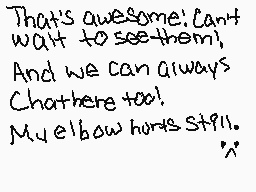 That's awesome! Can't
wait to see them!
And we can always
Chat here too!
My elbow hurts still.